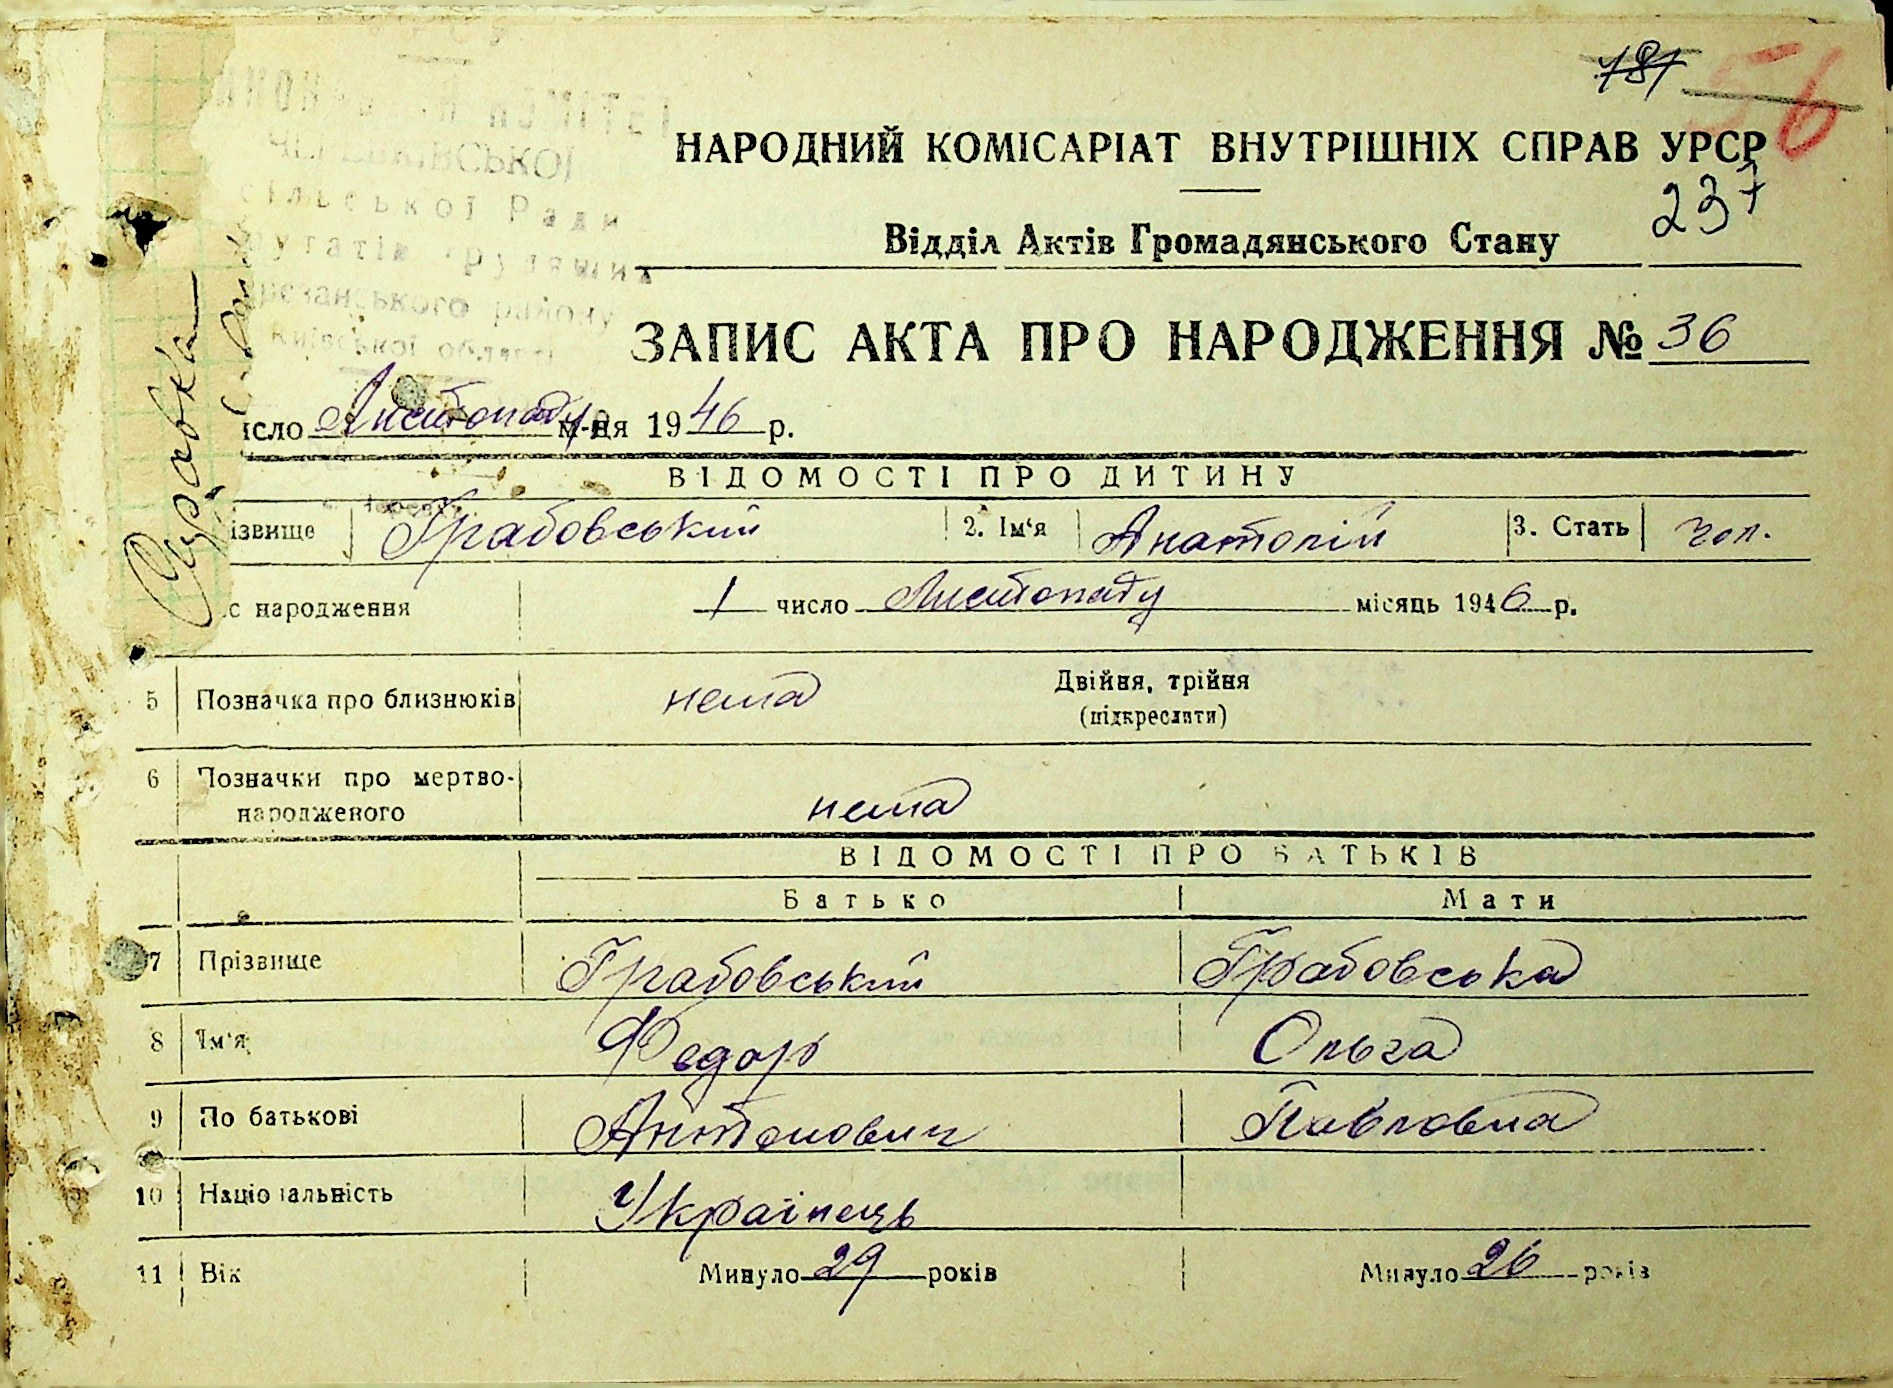 181 56
НАРОДНИЙ КОМІСАРІАТ ВНУТРІШНІХ СПРАВ УРСР
237
Відділ Актів Громадянського Стану
сільської Ради
району
Київської області
ЗАПИС АКТА ПРО НАРОДЖЕННЯ № 36
исло Листопаду м-ця 1946 р.
Справка
ВІДОМОСТІ ПРО ДИТИНУ
ізвище Грабовський 2. Ім'я Анатолій 3. Стать чол.
с народження 1 число Листопаду місяць 1946 р.
5 Позначка про близнюків нема Двійня, трійня
(підкреслити)
6 Позначки про мертво-
народженого нема
ВІДОМОСТІ ПРО БАТЬКІВ
Батько Мати
7 Прізвище Грабовський Грабовська
8 Ім'я Федор Ольга
9 По батькові Антонович Павловна
10 Національність Українець
11 Вік Минуло 29 років Минуло 26 років